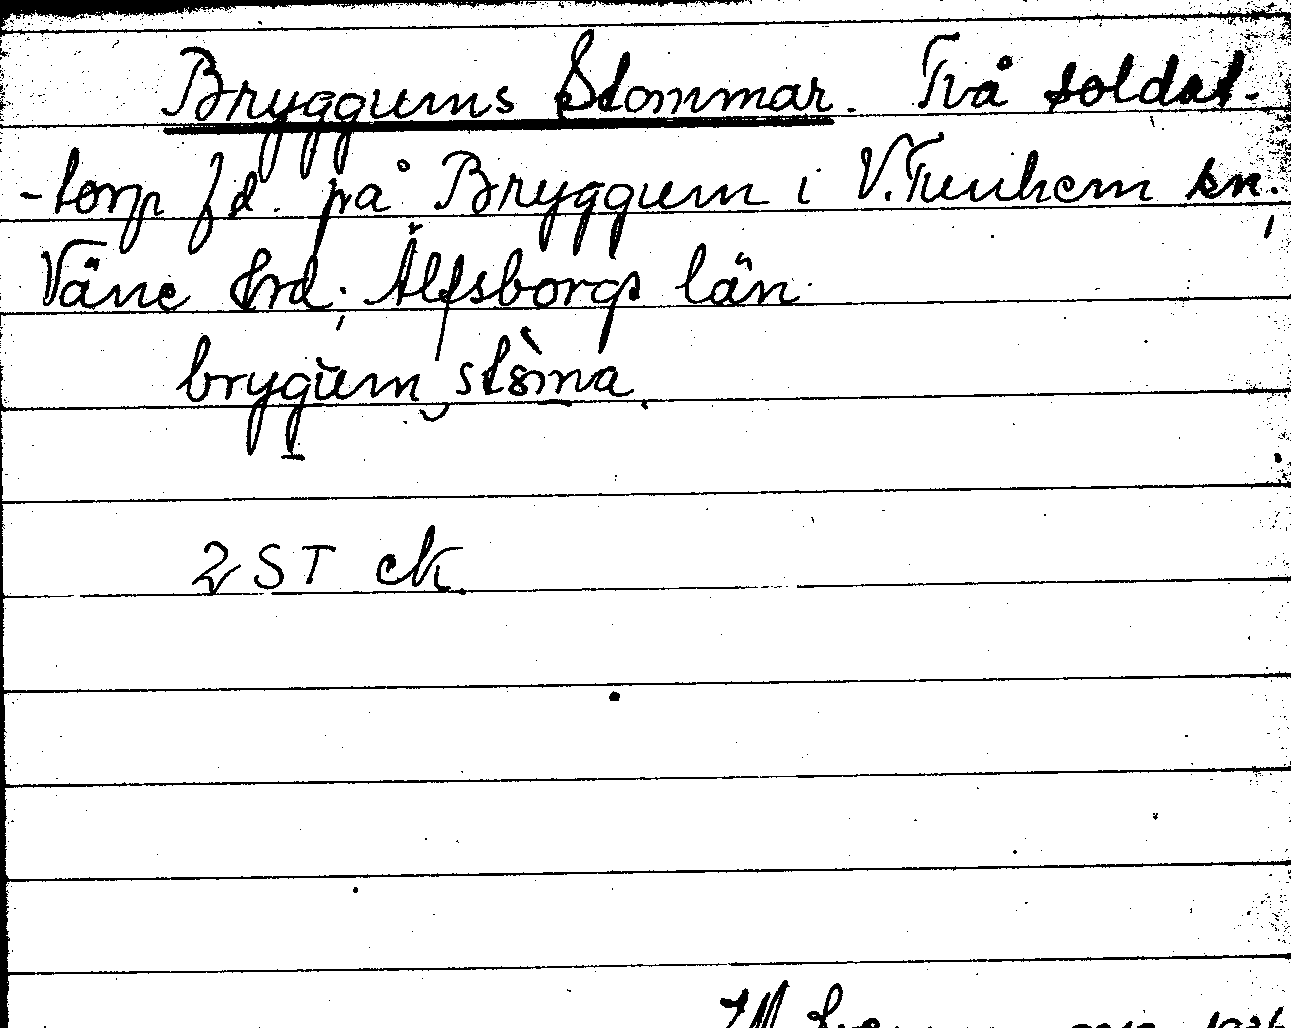 Bryggums Stommar. Två soldat-
-torp fd. på Bryggum i V. Tunhem sn,
Väne hrd, Älfsborgs län
brygum stòma.
2 ST ck.